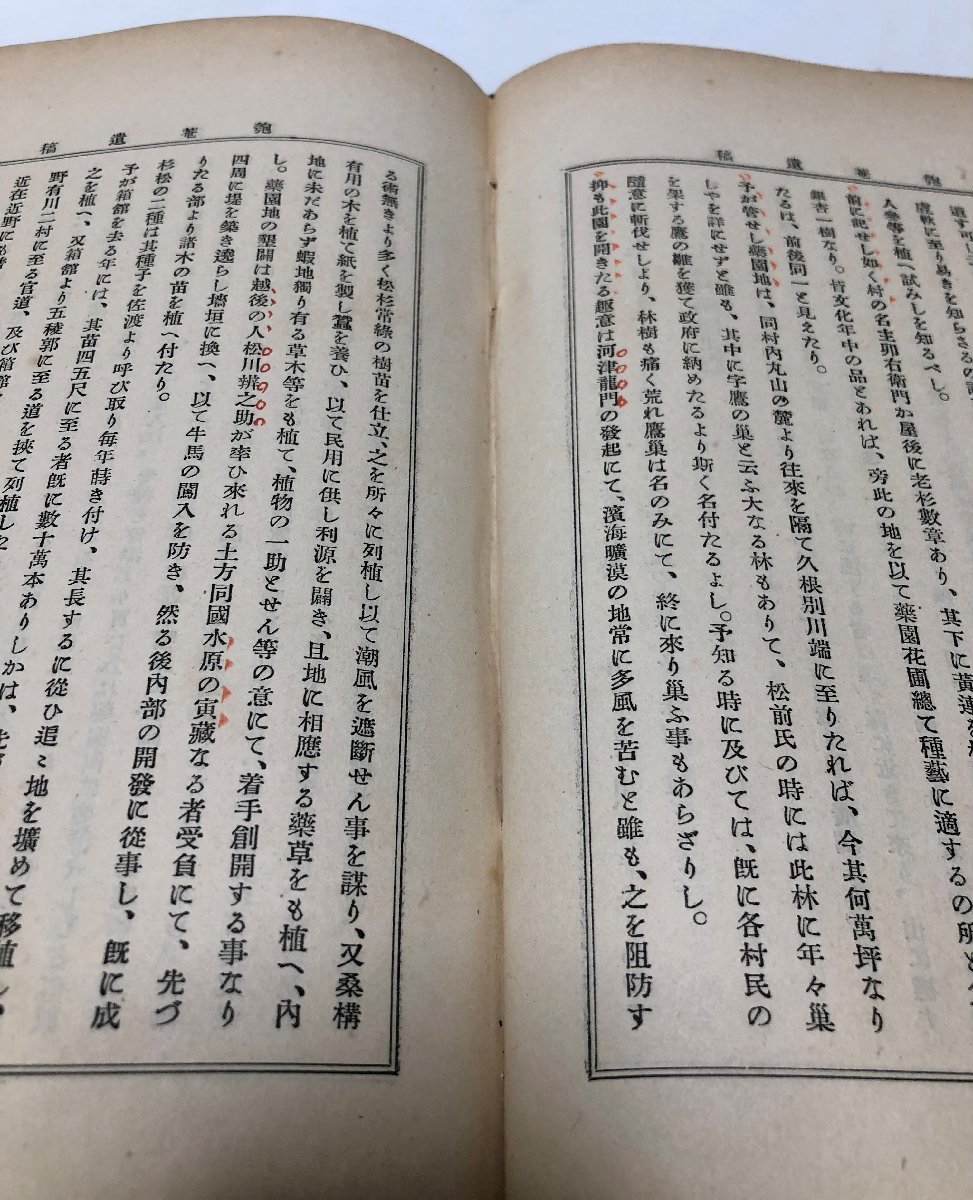 匏菴遺稿
虚軟に至り易きを知らさるの
人參等を植へ試みしを知るべし。
前に記せし如く村の名主卯右衛門か屋後に老杉數章あり、其下に黃蓮を
銀杏一樹なり。皆文化年中の品とあれば、旁此の地を以て藥園花圃總て種藝に適するの所と
たるは、前後同一と見えたり。
予が管せし藥園地は、同村内丸山の麓より往來を隔て久根別川端に至りたれば、今其何萬坪なり
しやを詳にせずと雖も、其中に字鷹の巢と云ふ大なる林もありて、松前氏の時には此林に年々巢
を架する鷹の雛を獲て政府に納めたるより斯く名付たるよし。予知る時に及びては、既に各村民の
隨意に斬伐せしより、林樹も痛く荒れ鷹巢は名のみにて、終に來り巢ふ事もあらざりし。
抑も此園を開きたる趣意は河津龍門の發起にて、濱海曠漠の地常に多風を苦むと雖も、之を阻防す
匏菴遺稿
る術無きより多く松杉常綠の樹苗を仕立、之を所々に列植し以て潮風を遮斷せん事を謀り、又桑構
有用の木を植て紙を製し蠶を養ひ、以て民用に供し利源を闢き、且地に相應する藥草をも植へ、內
地に未だあらず蝦地獨り有る草木等をも植て、植物の一助とせん等の意にて、着手創開する事なり
し。藥園地の墾闢は越後の人松川辨之助が率ひ來れる土方同國水原の寅藏なる者受負にて、先づ
四周に堤を築き遶らし墻垣に換へ、以て牛馬の闌入を防き、然る後內部の開發に從事し、既に成
りたる部より諸木の苗を植へ付たり。
杉松の二種は其種子を佐渡より呼び取り毎年蒔き付け、其長するに從ひ追々地を壙めて移植し、
予が箱館を去る年には、其苗四五尺に至る者既に數十萬本ありしかは、
之を植へ、又箱館より五稜郭に至る道を挾て列植した
野有川二村に至る官道、及び箱館
近在近野にも